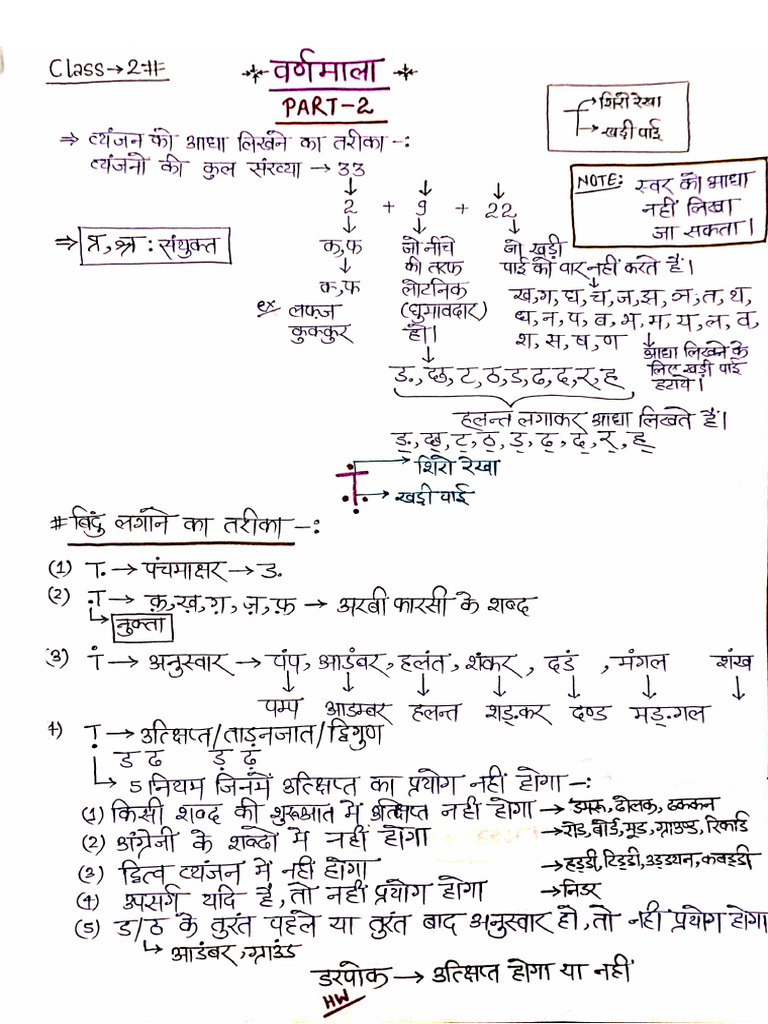 Class→2nd
वर्णमाला
PART-2
शिरो रेखा
खड़ी पाई
⇒ व्यंजन को आधा लिखने का तरीका -:
व्यंजनो की कुल संख्या → 33
NOTE: स्वर को आधा
नहीं लिखा
जा सकता।
2 + 9 + 22
⇒ त्र, श्र : संयुक्त
क,फ
क,फ
ex लफ्ज
कुक्कुर
जो नीचे
की तरफ
लोटनिक
(घुमावदार)
हो।
जो खड़ी
पाई को पार नहीं करते हैं।
ख,ग,घ,च,ज,झ,ञ,त,थ,
ध,न,प,ब,भ,म,य,ल,व,
श,स,ष,ण
आधा लिखने के
लिए खड़ी पाई
हटाये।
ङ,छ,ट,ठ,ड,ढ,द,र,ह
हलन्त लगाकर आधा लिखते हैं।
ङ्,छ्,ट्,ठ्,ड्,ढ्,द्,र्,ह्
शिरो रेखा
खड़ी पाई
# बिंदु लगाने का तरीका -:
(1) T. → पंचमाक्षर → ङ
(2) T → क़,ख़,ग़,ज़,फ़ → अरबी फारसी के शब्द
नुक्ता
3) T → अनुस्वार → पंप, आडंबर, हलंत, शंकर, दडं , मंगल शंख
पम्प आडम्बर हलन्त शङ्कर दण्ड मङ्गल
4) T → उत्क्षिप्त/ताड़नजात/द्विगुण
ड ढ ड़ ढ़
5 नियम जिनमें उत्क्षिप्त का प्रयोग नहीं होगा -:
(1) किसी शब्द की शुरूआत में उत्क्षिप्त नहीं होगा → डमरू, ढोलक, ढक्कन
(2) अंग्रेजी के शब्दो में नहीं होगा → रोड, बोर्ड, मूड, ग्राउण्ड, रिकॉर्ड
(3) द्वित्व व्यंजन में नहीं होगा → हड्डी, टिड्डी, उड्डयन, कबड्डी
(4) उपसर्ग यदि है, तो नहीं प्रयोग होगा → निडर
(5) ड/ठ के तुरंत पहले या तुरंत बाद अनुस्वार हो, तो नहीं प्रयोग होगा
आडंबर, ग्राउंड
डरपोक → उत्क्षिप्त होगा या नहीं
HW